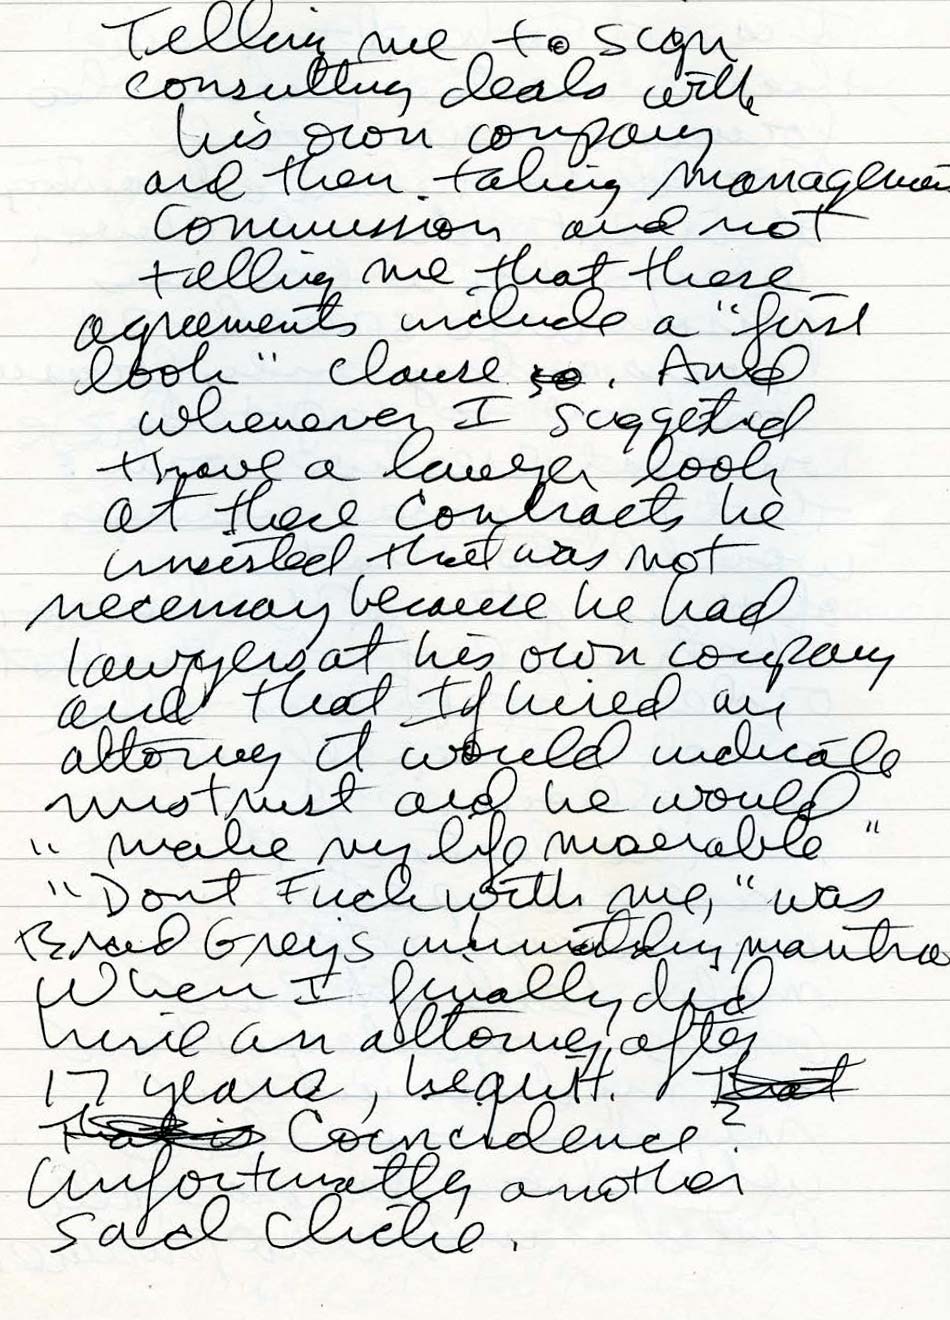 Telling me to sign
consulting deals with
his own company
and then taking managemen
commission and not
telling me that these
agreements include a "first
look" clause so. And
whenever I suggested
I have a lawyer look
at these contracts he
insisted that was not
necessary because he had
lawyers at his own company
and that If hired an
attorney it would indicate
mistrust and he would
"make my life miserable"
"Dont Fuck with me," was
Brad Grey's intimidating mantra
When I finally did
hire an attorney, after
17 years, he quit. That
That is Coincidence?
Unfortunatly another
sad cliche.